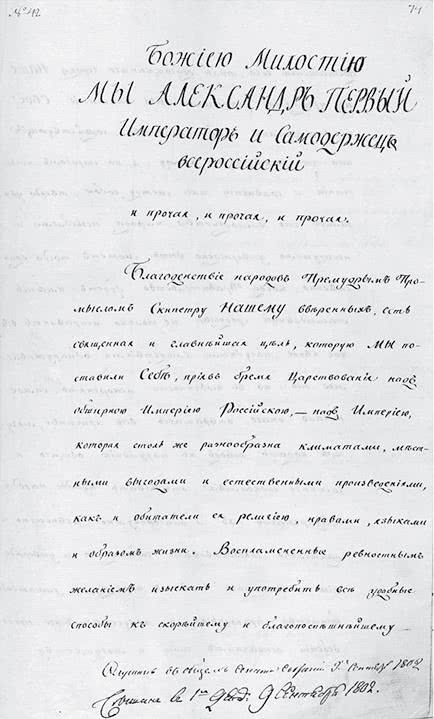 № 42
71
Божіею Милостію
МЫ АЛЕКСАНДРЪ ПЕРВЫЙ
Императоръ и Самодержецъ
всероссійскій
и прочая, и прочая, и прочая.
Благоденствіе народовъ Премудрымъ Про-
мысломъ Скипетру Нашему ввѣренныхъ, есть
священная и главнѣйшая цѣль, которую МЫ по-
ставили Себѣ, пріявъ бремя Царствованія надъ
обширною Имперіею Россійскою, — надъ Имперіею,
которая столь же разнообразна климатами, мѣст-
ными выгодами и естественными произведеніями,
какъ и обитатели ея религіею, нравами, языками
и образомъ жизни. Воспламененные ревностнымъ
желаніемъ изыскать и употребить всѣ удобные
способы къ скорѣйшему и благопоспѣшнѣйшему
въ общемъ собраніи 1802
9 Сентября 1802.